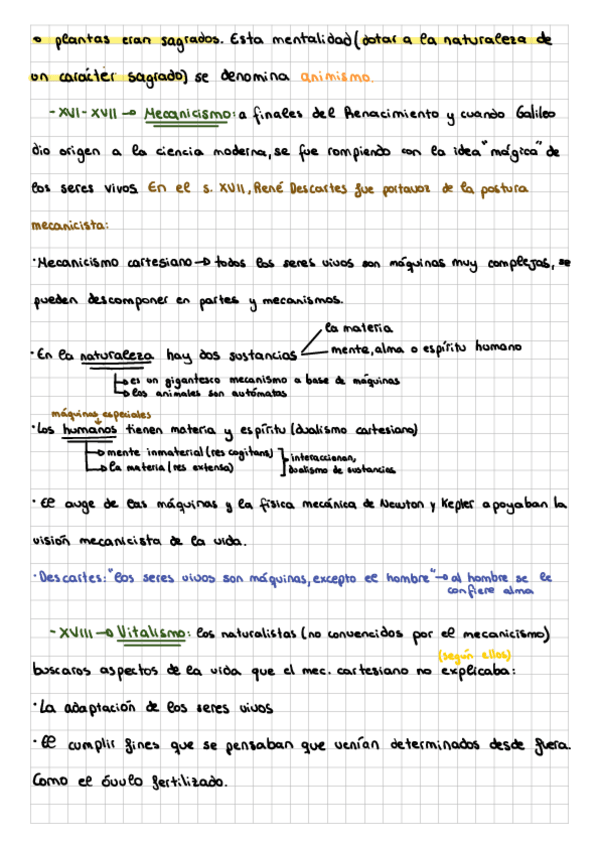 o plantas eran sagrados. Esta mentalidad (dotar a la naturaleza de
un carácter sagrado) se denomina animismo.
- XVI - XVII → Mecanicismo: a finales del Renacimiento y cuando Galileo
dio origen a la ciencia moderna, se fue rompiendo con la idea "mágica" de
los seres vivos. En el s. XVII, René Descartes fue portavoz de la postura
mecanicista:
· Mecanicismo cartesiano → todos los seres vivos son máquinas muy complejas, se
pueden descomponer en partes y mecanismos.
la materia
· En la naturaleza hay dos sustancias
mente, alma o espíritu humano
→ es un gigantesco mecanismo a base de máquinas
→ los animales son autómatas
máquinas especiales
· Los humanos tienen materia y espíritu (dualismo cartesiano)
→ mente inmaterial (res cogitans)
interaccionan,
→ la materia (res extensa)
dualismo de sustancias
· El auge de las máquinas y la física mecánica de Newton y Kepler apoyaban la
visión mecanicista de la vida.
· Descartes: "los seres vivos son máquinas, excepto el hombre" → al hombre se le
confiere alma
- XVIII → Vitalismo: los naturalistas (no convencidos por el mecanicismo)
(según ellos)
buscaros aspectos de la vida que el mec. cartesiano no explicaba:
· La adaptación de los seres vivos
· El cumplir fines que se pensaban que venían determinados desde fuera.
Como el óvulo fertilizado.